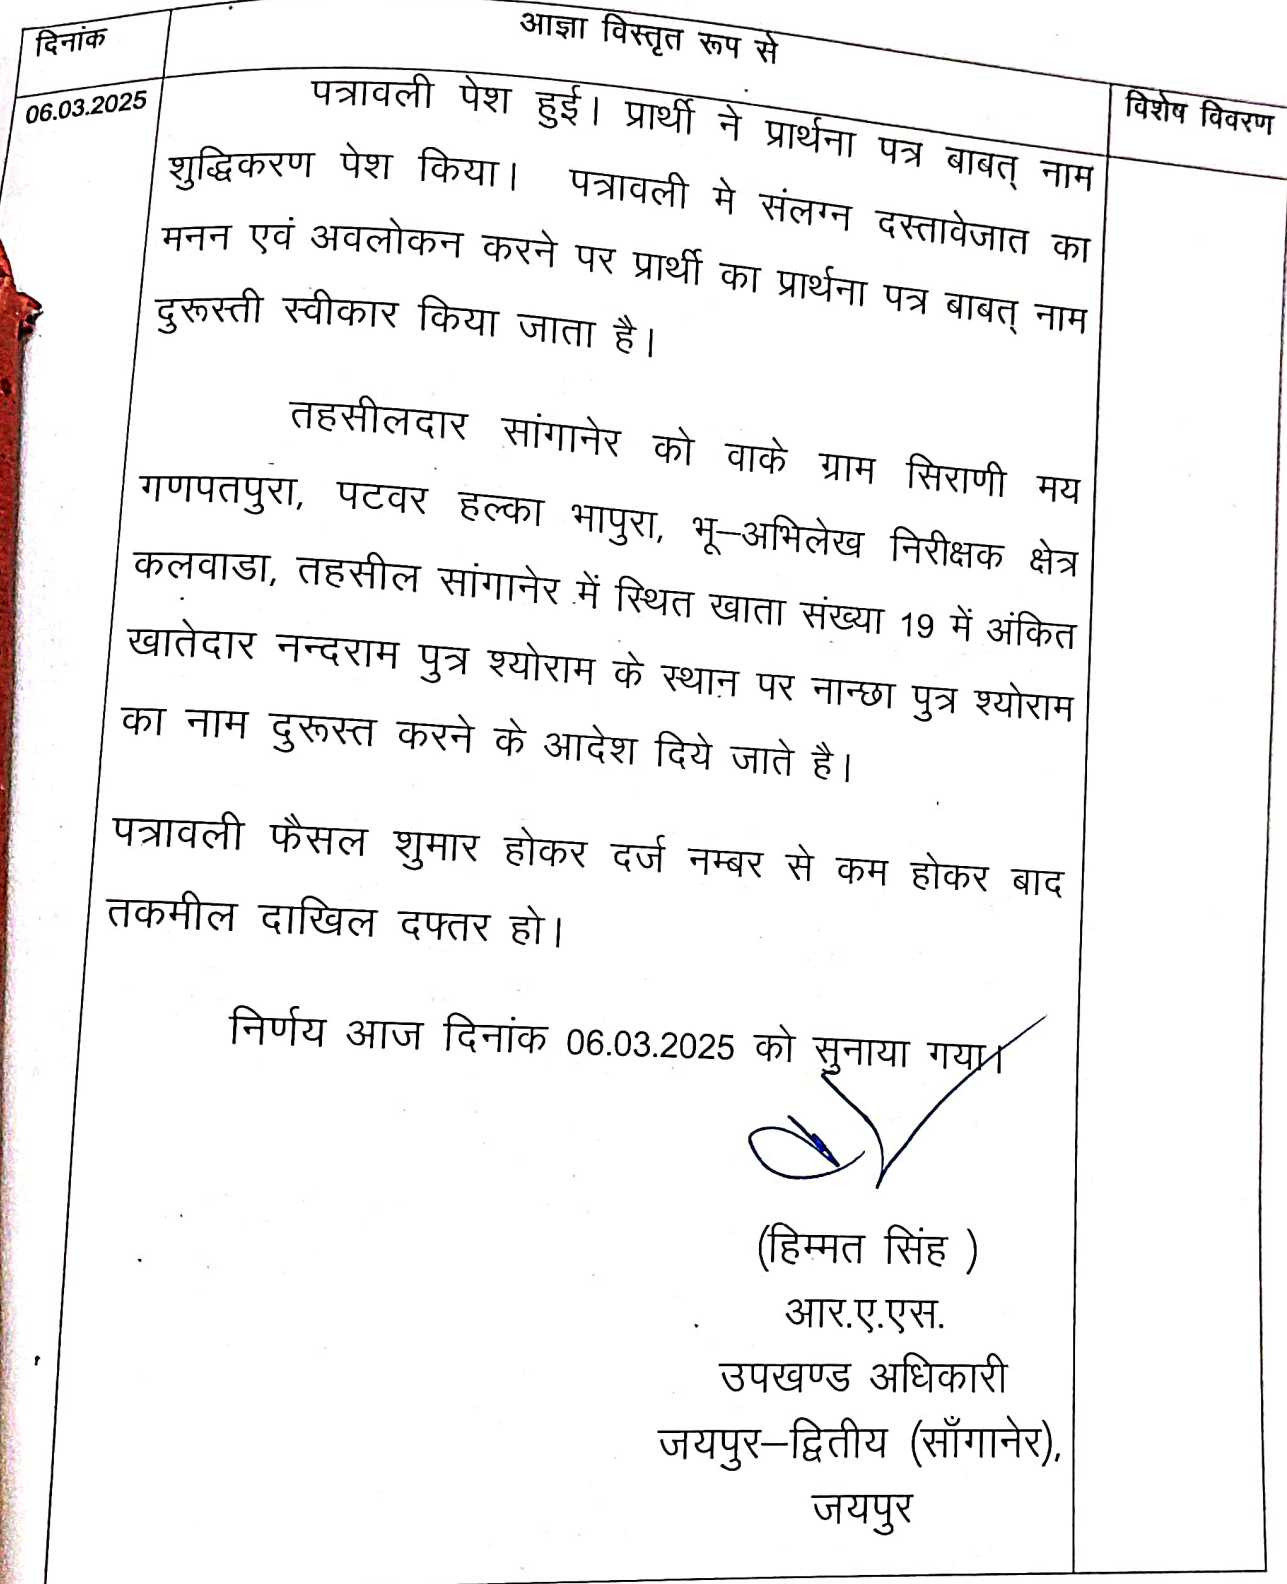 दिनांक
आज्ञा विस्तृत रूप से
विशेष विवरण
06.03.2025
पत्रावली पेश हुई। प्रार्थी ने प्रार्थना पत्र बाबत् नाम
शुद्धिकरण पेश किया। पत्रावली मे संलग्न दस्तावेजात का
मनन एवं अवलोकन करने पर प्रार्थी का प्रार्थना पत्र बाबत् नाम
दुरूस्ती स्वीकार किया जाता है।
तहसीलदार सांगानेर को वाके ग्राम सिराणी मय
गणपतपुरा, पटवर हल्का भापुरा, भू–अभिलेख निरीक्षक क्षेत्र
कलवाडा, तहसील सांगानेर में स्थित खाता संख्या 19 में अंकित
खातेदार नन्दराम पुत्र श्योराम के स्थान पर नान्छा पुत्र श्योराम
का नाम दुरूस्त करने के आदेश दिये जाते है।
पत्रावली फैसल शुमार होकर दर्ज नम्बर से कम होकर बाद
तकमील दाखिल दफ्तर हो।
निर्णय आज दिनांक 06.03.2025 को सुनाया गया।
(हिम्मत सिंह )
आर.ए.एस.
उपखण्ड अधिकारी
जयपुर–द्वितीय (साँगानेर),
जयपुर